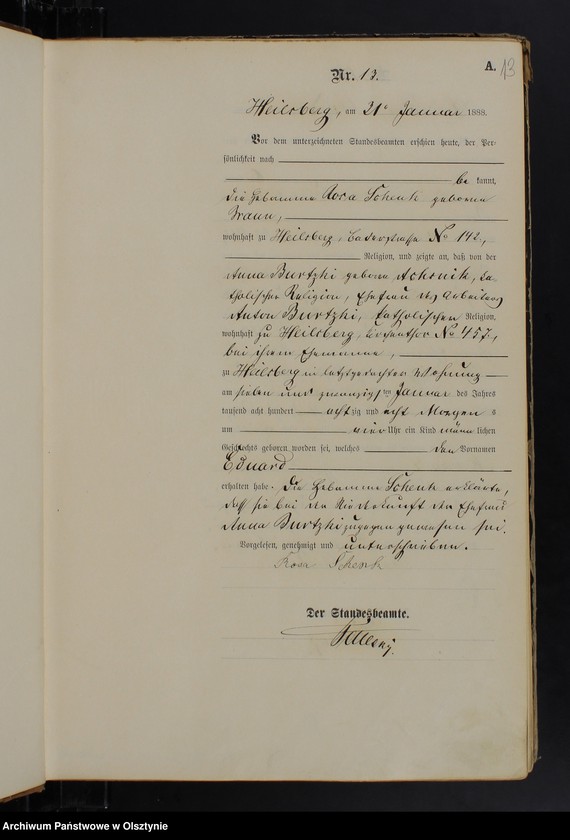 A. 13
Nr. 13.
Heilsberg, am 21. Januar 1888.
Vor dem unterzeichneten Standesbeamten erschien heute, der Per-
sönlichkeit nach
be kannt,
die Hebamme Rosa Schenk geborene
Braun,
wohnhaft zu Heilsberg, Baderstraße No 142,
Religion, und zeigte an, daß von der
Anna Burtzki geborne, ka-
tholischer Religion, Ehefrau des Arbeiters
Anton Burtzki, katholischer Religion,
wohnhaft zu Heilsberg, No 457,
bei ihrem Ehemanne,
zu Heilsberg in letztgedachter Wohnung
am und zwanzigsten Januar des Jahres
tausend acht hundert achtzig und acht Morgens
um vier Uhr ein Kind männlichen
Geschlechts geboren worden sei, welches den Vornamen
Eduard
erhalten habe. Die Hebamme Schenk erklärte,
daß sie bei der Niederkunft der Ehefrau
Anna Burtzki zugegen gewesen sei.
Vorgelesen, genehmigt und unterschrieben.
Rosa Schenk
Der Standesbeamte.
Archiwum Państwowe w Olsztynie